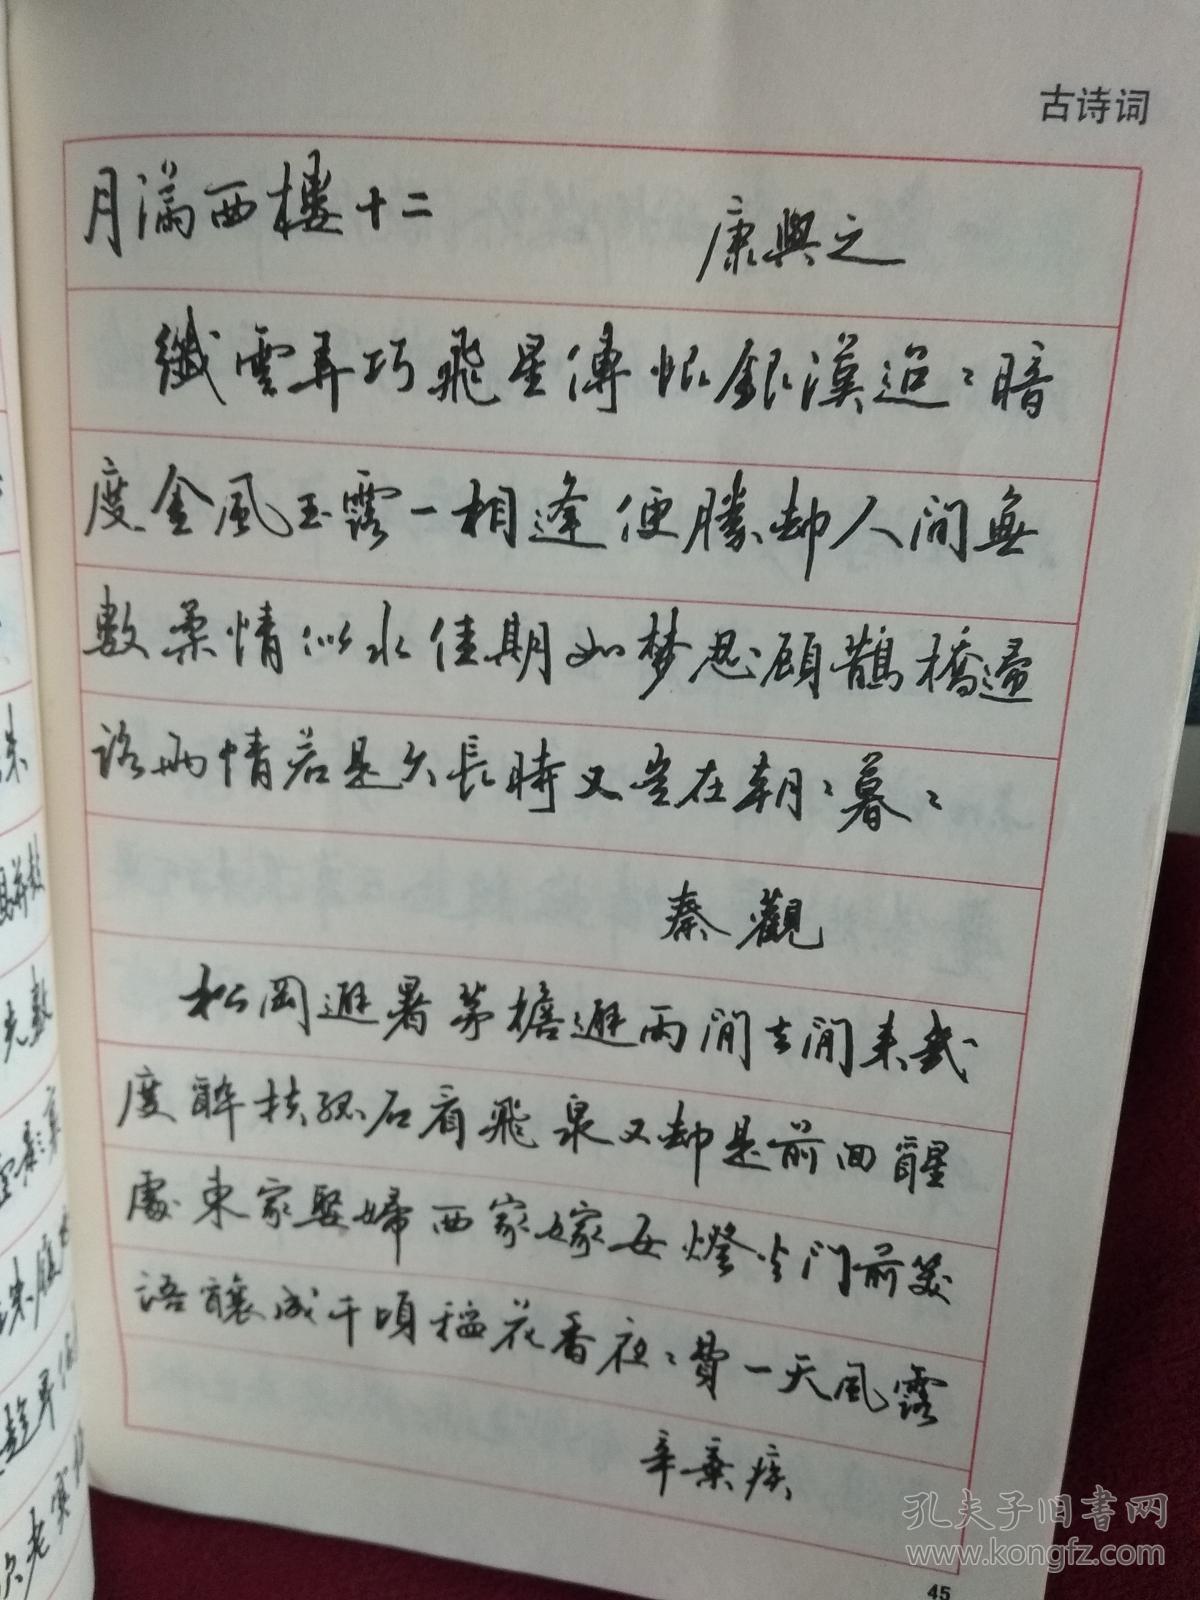 古诗词
月滿西樓十二 康與之
纖雲弄巧飛星傳恨銀漢迢〻暗
度金風玉露一相逢便勝却人間無
數柔情似水佳期如夢忍顧鵲橋歸
路兩情若是久長時又豈在朝〻暮〻
秦觀
松岡避暑茅檐避雨閒去閒來幾
度醉扶孤石看飛泉又却是前回醒
處東家娶婦西家嫁女燈火门前笑
語釀成千頃稻花香夜〻費一天風露
辛棄疾
孔夫子旧书网
www.kongfz.com
45